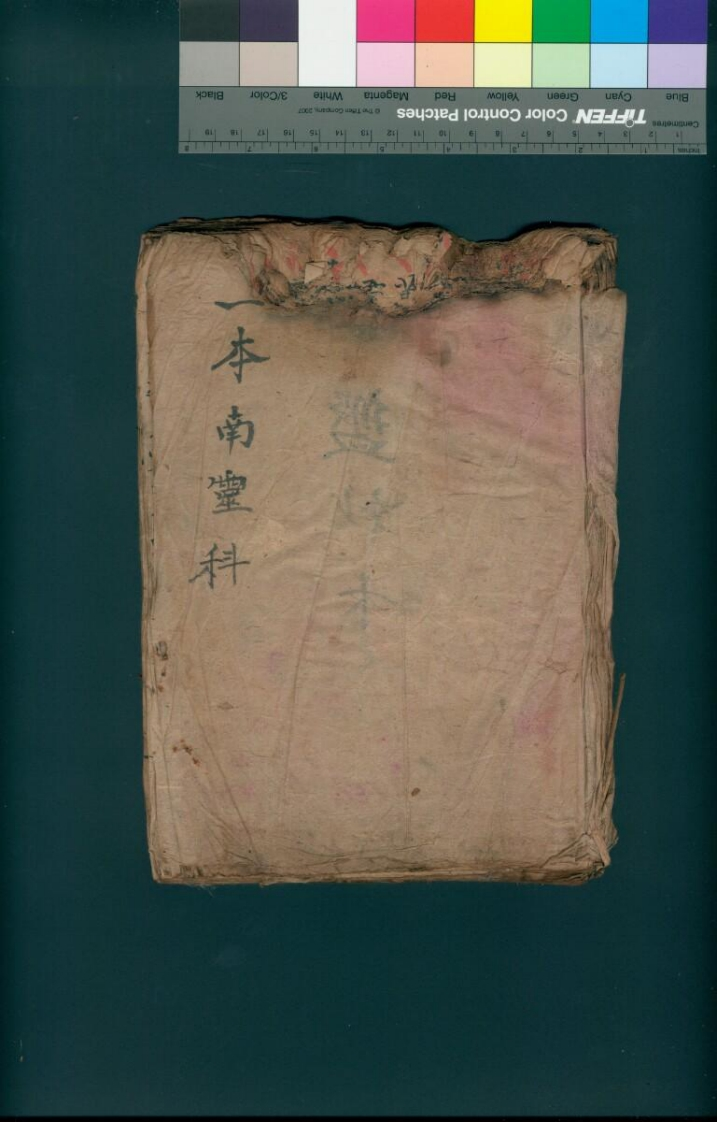 一本南靈科
Blue Cyan Green Yellow Red Magenta White 3/Color Black
TIFFEN Color Control Patches
© The Tiffen Company, 2007
Centimetres 1 2 3 4 5 6 7 8 9 10 11 12 13 14 15 16 17 18 19
Inches 1 2 3 4 5 6 7 8